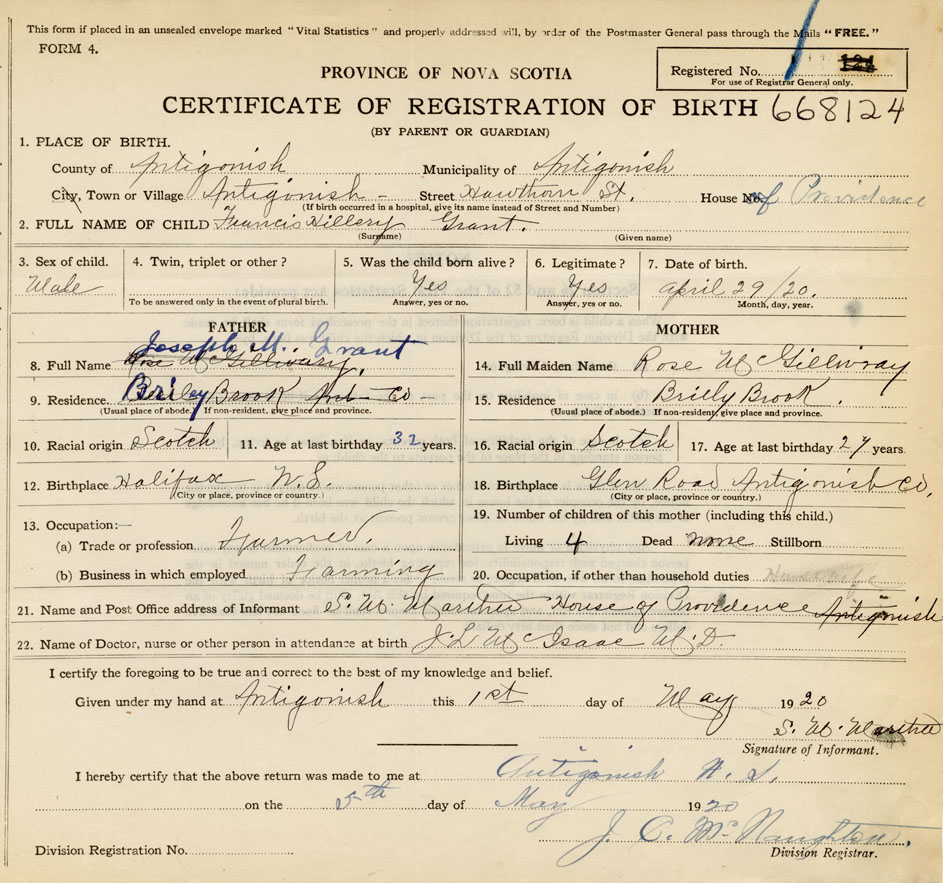 This form if placed in an unsealed envelope marked "Vital Statistics" and properly addressed will, by order of the Postmaster General pass through the Mails "FREE."
FORM 4.
Registered No. 124
For use of Registrar General only.
PROVINCE OF NOVA SCOTIA
CERTIFICATE OF REGISTRATION OF BIRTH 668124
(BY PARENT OR GUARDIAN)
1. PLACE OF BIRTH.
County of Antigonish Municipality of Antigonish
City, Town or Village Antigonish Street Hawthorn St. House No. of Providence
(If birth occurred in a hospital, give its name instead of Street and Number)
2. FULL NAME OF CHILD Francis Hillery Grant.
(Surname) (Given name)
3. Sex of child. 4. Twin, triplet or other? 5. Was the child born alive? 6. Legitimate? 7. Date of birth.
Male Yes Yes April 29/20.
To be answered only in the event of plural birth. Answer, yes or no. Answer, yes or no. Month, day, year.
FATHER MOTHER
Joseph M. Grant
8. Full Name Rose McGillivray, 14. Full Maiden Name Rose McGillivray
9. Residence. Briley Brook Ant Co 15. Residence Briely Brook.
(Usual place of abode.) If non-resident, give place and province. (Usual place of abode.) If non-resident, give place and province.
10. Racial origin Scotch 11. Age at last birthday 32 years. 16. Racial origin Scotch 17. Age at last birthday 27 years
12. Birthplace Halifax N.S. 18. Birthplace Glen Road Antigonish Co,
(City or place, province or country.) (City or place, province or country.)
13. Occupation:— 19. Number of children of this mother (including this child.)
(a) Trade or profession Farmer. Living 4 Dead none Stillborn
(b) Business in which employed Farming 20. Occupation, if other than household duties Housewife
21. Name and Post Office address of Informant S. M. Martha House of Providence Antigonish
22. Name of Doctor, nurse or other person in attendance at birth J. L. McIsaac M.D.
I certify the foregoing to be true and correct to the best of my knowledge and belief.
Given under my hand at Antigonish this 1st day of May 1920
S. M. Martha
Signature of Informant.
I hereby certify that the above return was made to me at Antigonish N.S.
on the 5th day of May 1920
J. C. McNaughton.
Division Registration No. Division Registrar.